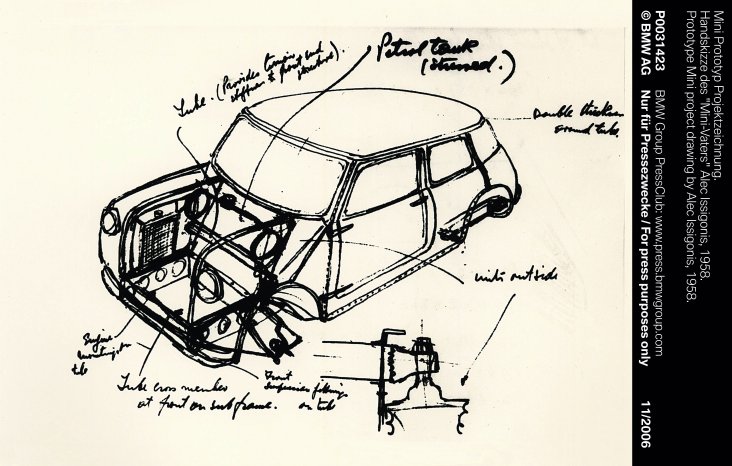 Petrol tank
(stressed.)
Tube. (Provides torsional
stiffness to front
structure).
Double thickness
around tube
units outside
Engine
mounting on
tube
Tube cross member
at front on subframe.
Front
suspension fittings
on tube
Mini Prototyp Projektzeichnung,
Handskizze des "Mini-Vaters" Alec Issigonis, 1958.
Prototype Mini project drawing by Alec Issigonis, 1958.
P0031423 BMW Group PressClub: www.press.bmwgroup.com
© BMW AG Nur für Pressezwecke / For press purposes only 11/2006